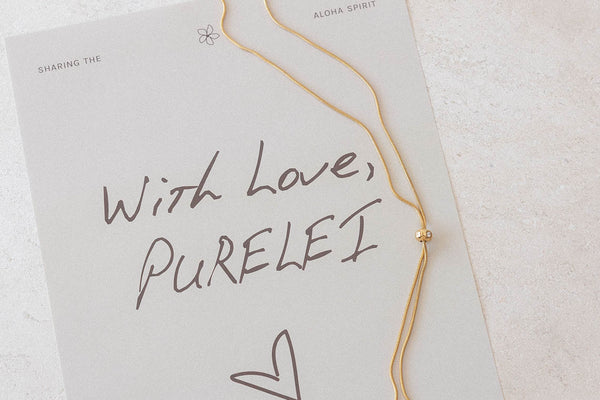 SHARING THE
ALOHA SPIRIT
With Love,
PURELEI